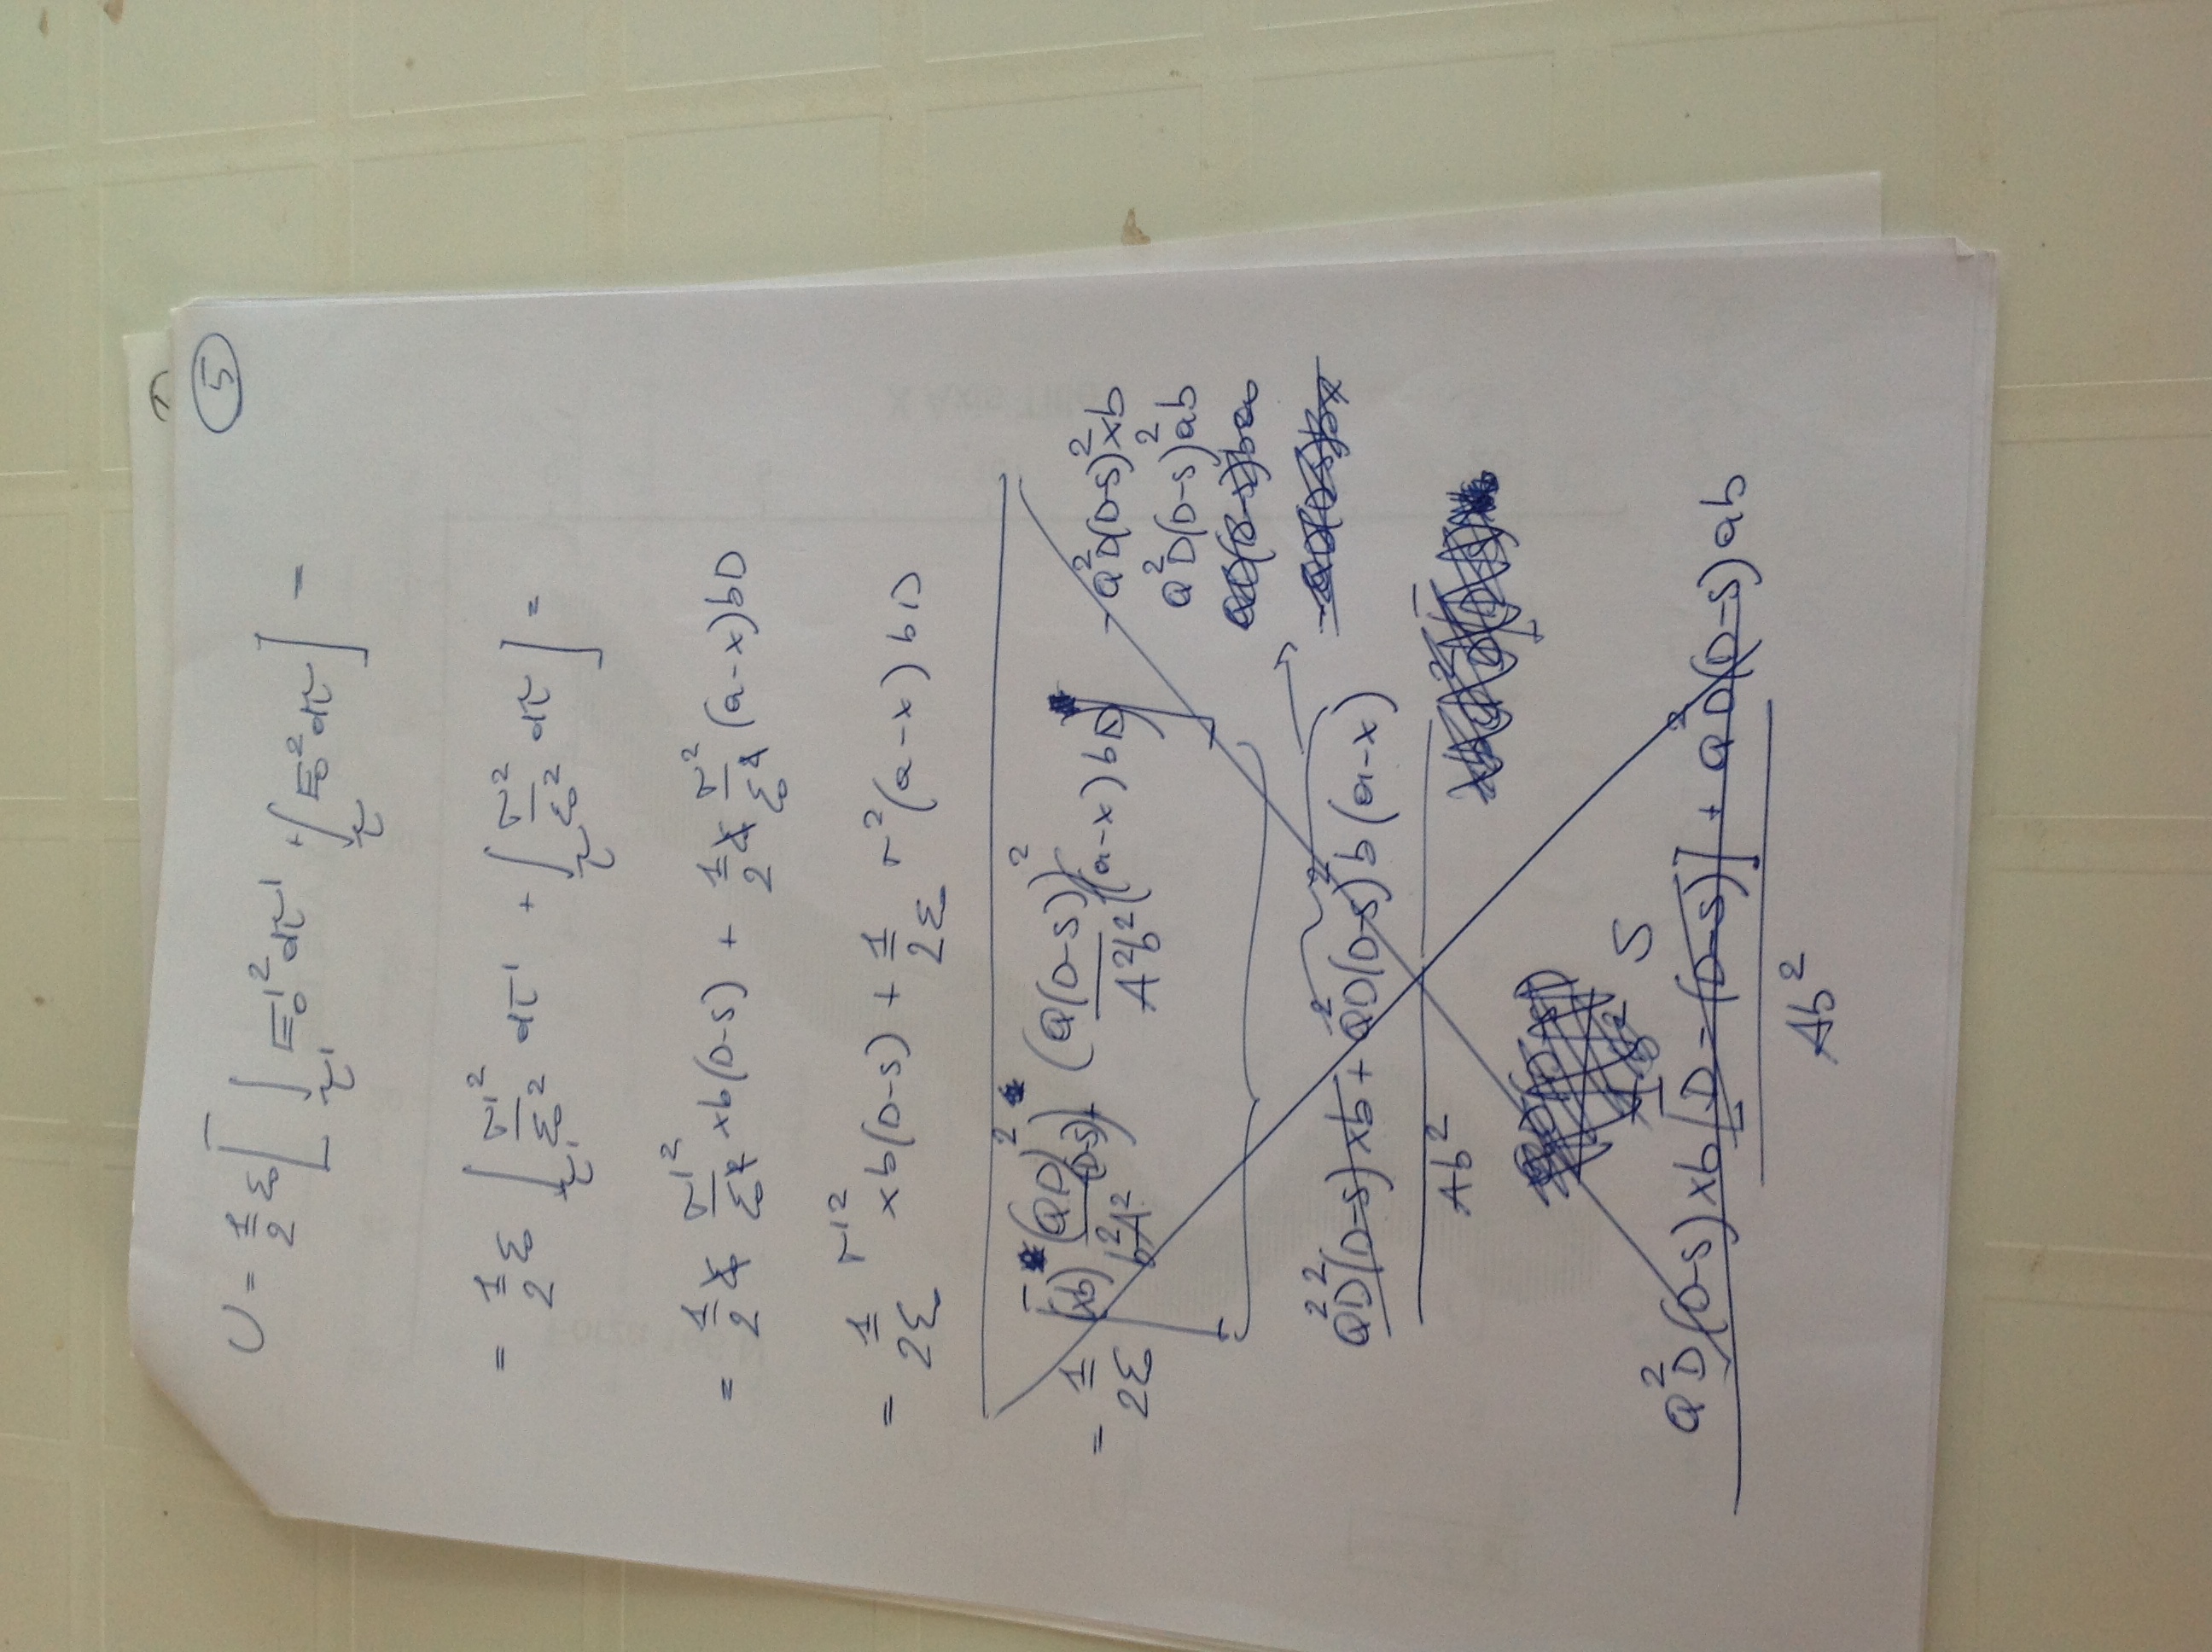 5
U = 1/2 ε₀ [ ∫_τ' E₀'² dτ' + ∫_τ E₀² dτ ] =
= 1/2 ε₀ [ ∫_τ' σ'²/ε₀² dτ' + ∫_τ σ²/ε₀² dτ ] =
= 1/2 ε₀ σ'²/ε₀² xb(D-S) + 1/2 ε₀ σ²/ε₀² (a-x)bD
= 1/2ε₀ σ'² xb(D-S) + 1/2ε₀ σ²(a-x)bD
= 1/2ε₀ [ (xb) (QD)²/b²A² (D-S) + (Q(D-S))²/A²b² (a-x)bD ]
- Q²D(D-S)²xb
Q²D(D-S)²ab
Q²D²(D-S)xb + Q²D(D-S)²b(a-x)
Ab²
S
Q²D(D-S)xb[D-(D-S)] + Q²D(D-S)ab
Ab²